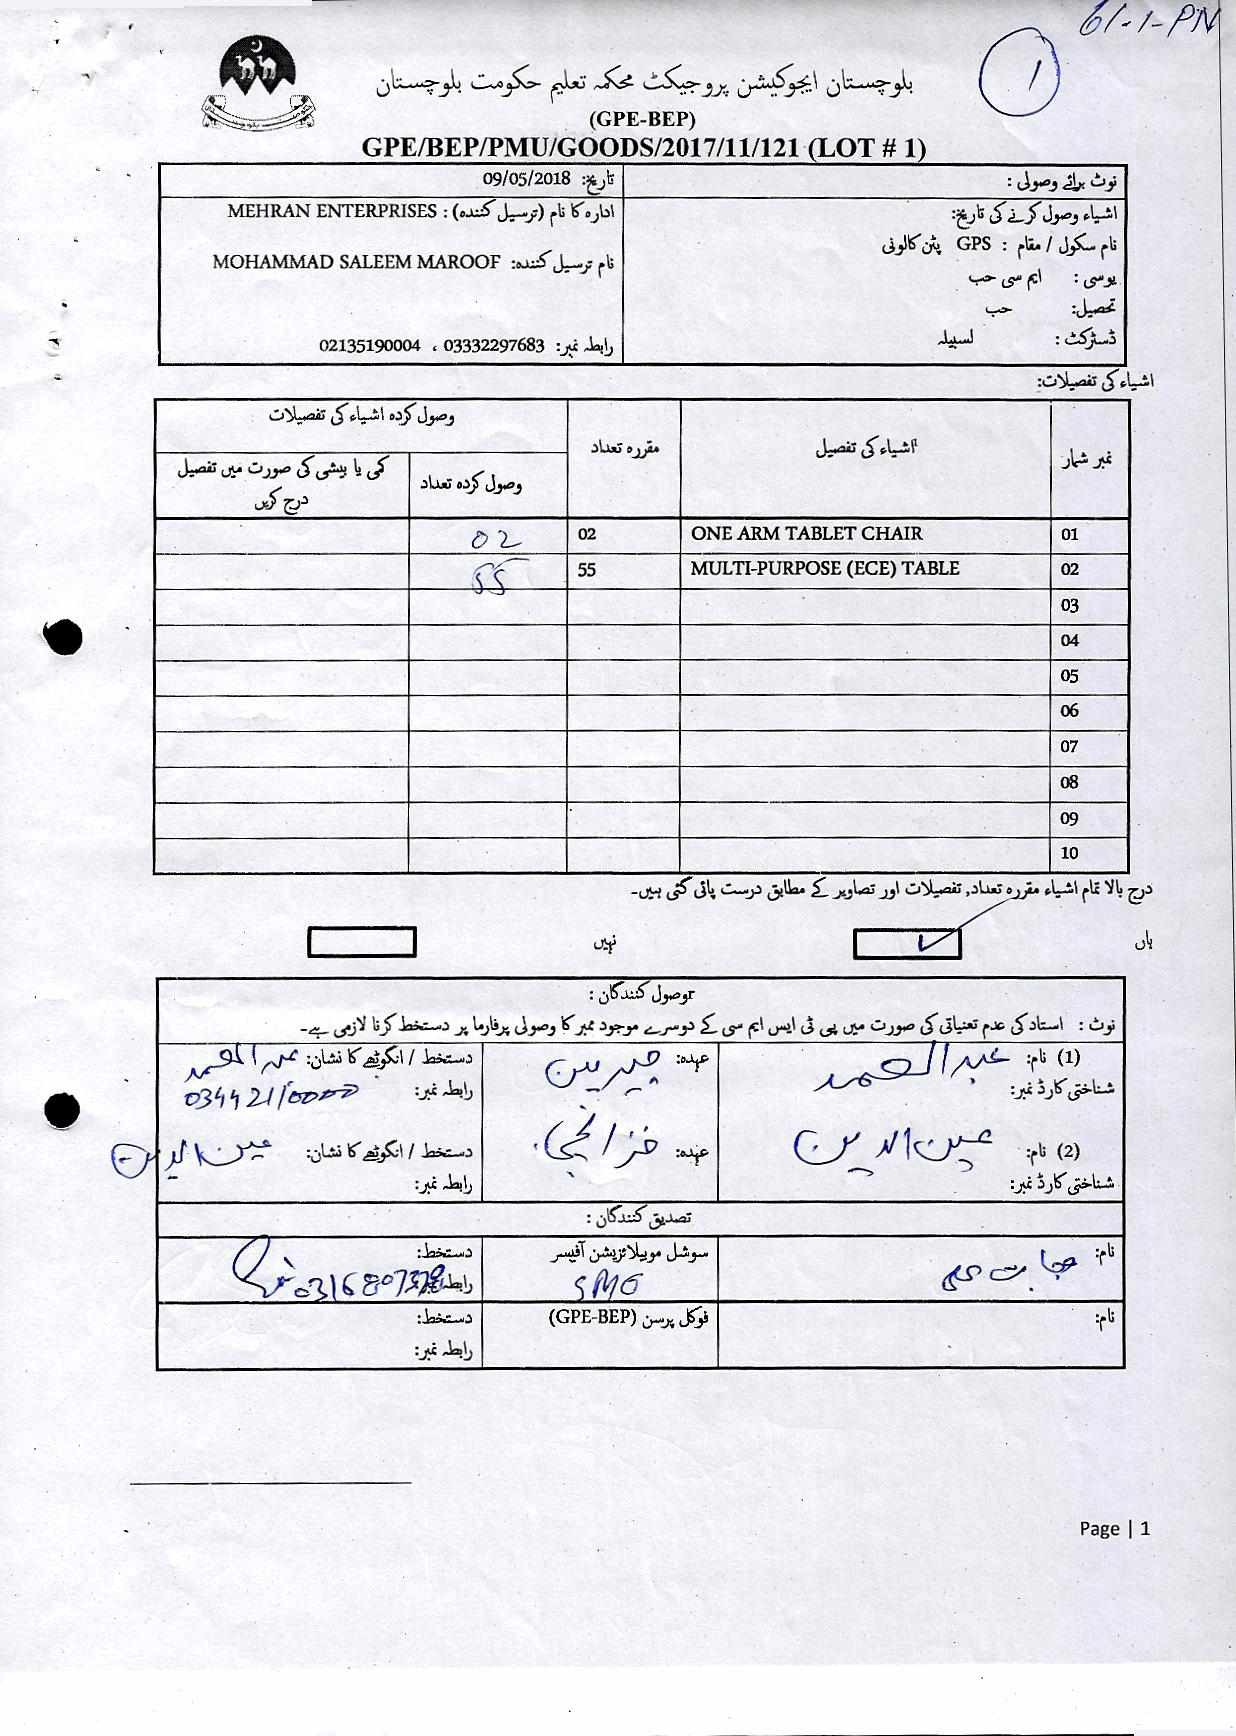 61-1-PN
1
بلوچستان ایجوکیشن پروجیکٹ محکمہ تعلیم حکومت بلوچستان
(GPE-BEP)
GPE/BEP/PMU/GOODS/2017/11/121 (LOT # 1)
نوٹ برائے وصولی :
تاریخ: 09/05/2018
اشیاء وصول کرنے کی تاریخ:
نام سکول / مقام : GPS پٹن کالونی
یوسی : ایم سی حب
تحصیل: حب
ڈسٹرکٹ : لسبیلہ
ادارہ کا نام (ترسیل کنندہ) : MEHRAN ENTERPRISES
نام ترسیل کنندہ: MOHAMMAD SALEEM MAROOF
رابطہ نمبر: 03332297683 ، 02135190004
اشیاء کی تفصیلات:
نمبر شمار اشیاء کی تفصیل مقررہ تعداد وصول کردہ اشیاء کی تفصیلات
وصول کردہ تعداد کمی یا بیشی کی صورت میں تفصیل درج کریں
01 ONE ARM TABLET CHAIR 02 02
02 MULTI-PURPOSE (ECE) TABLE 55 55
03
04
05
06
07
08
09
10
درج بالا تمام اشیاء مقررہ تعداد, تفصیلات اور تصاویر کے مطابق درست پائی گئی ہیں۔
ہاں ✓ نہیں
وصول کنندگان :
نوٹ : استاد کی عدم تعیناتی کی صورت میں پی ٹی ایس ایم سی کے دوسرے موجود ممبر کا وصولی پرفارما پر دستخط کرنا لازمی ہے۔
(1) نام: عبدالصمد عہدہ: چیرمین دستخط / انگوٹھے کا نشان: عبدالصمد
شناختی کارڈ نمبر: رابطہ نمبر: 03442110000
(2) نام: عین الدین عہدہ: خزانچی دستخط / انگوٹھے کا نشان: عین الدین
شناختی کارڈ نمبر: رابطہ نمبر:
تصدیق کنندگان :
نام: سوشل موبیلائزیشن آفیسر دستخط:
SMO رابطہ
نام: فوکل پرسن (GPE-BEP) دستخط:
رابطہ نمبر:
Page | 1